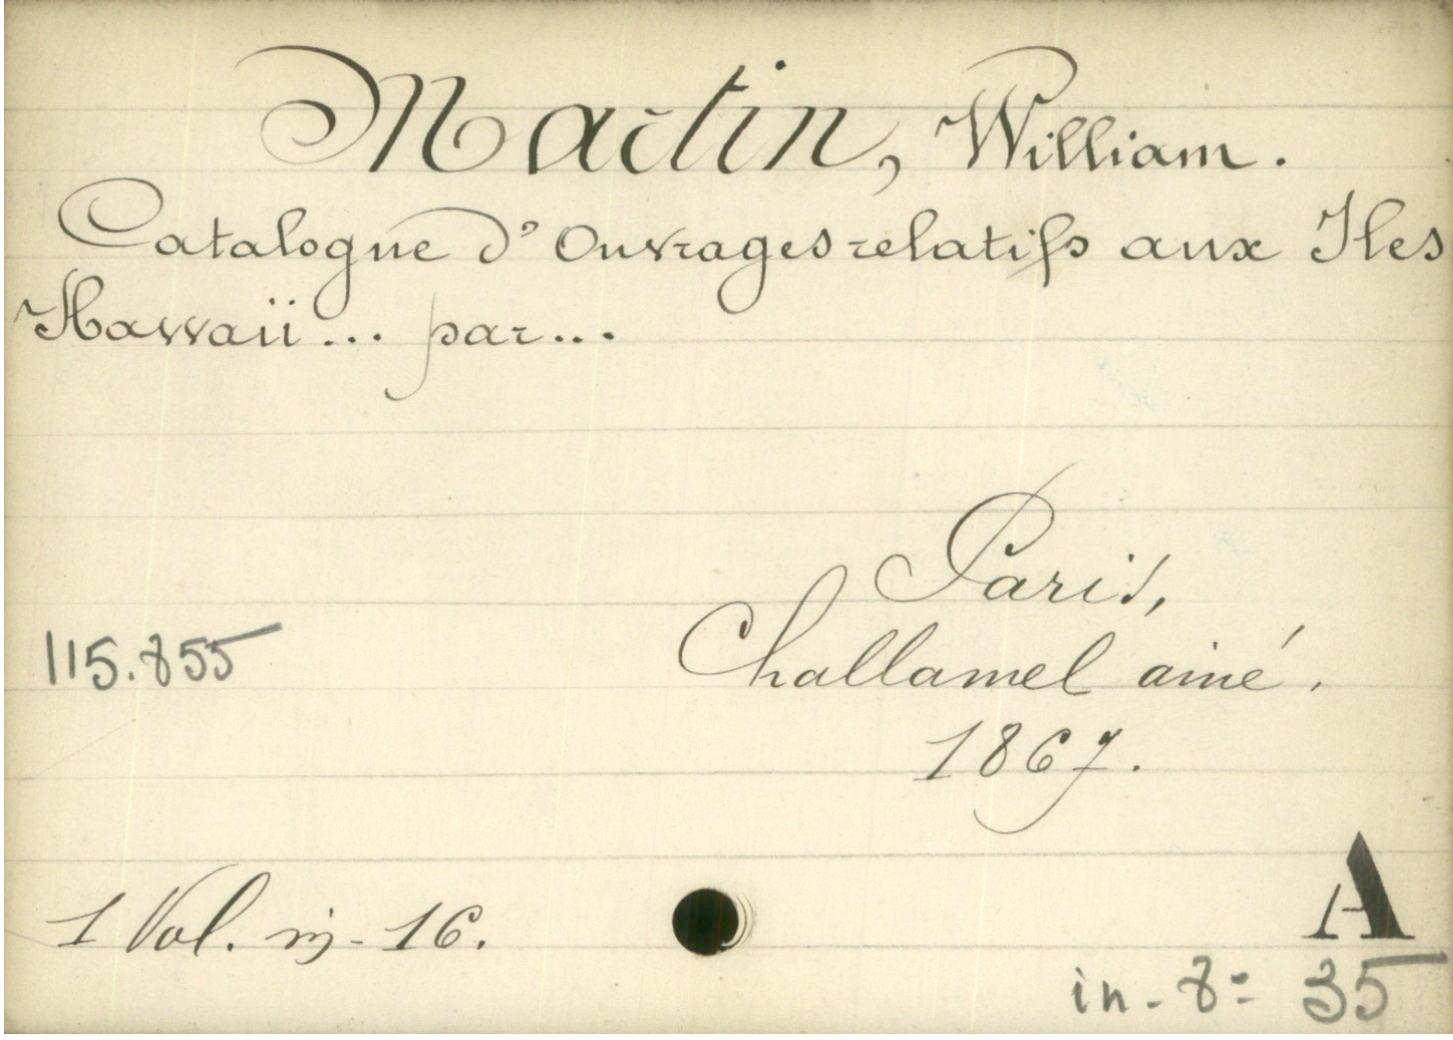 Martin, William.
Catalogue d'Ouvrages relatifs aux Iles
Hawaii... par...
Paris,
Challamel ainé.
115.855
1867.
1 Vol. in-16.
A
in-8° 35